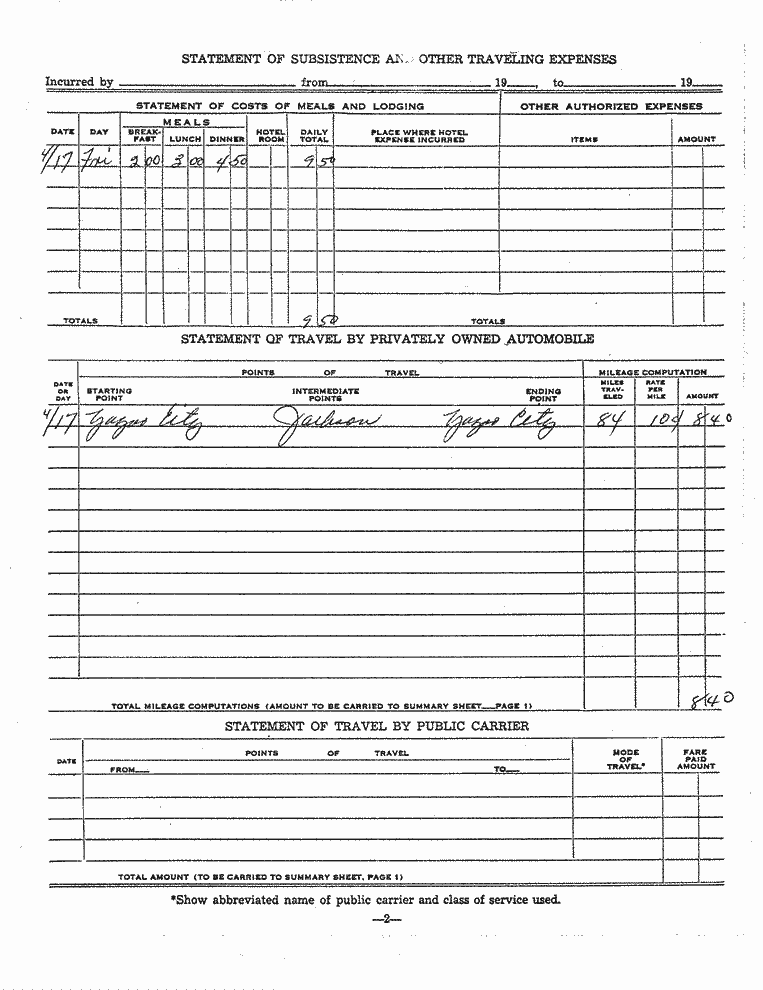 STATEMENT OF SUBSISTENCE AN OTHER TRAVELING EXPENSES
Incurred by from 19 , to 19
STATEMENT OF COSTS OF MEALS AND LODGING OTHER AUTHORIZED EXPENSES
DATE DAY MEALS BREAK-FAST LUNCH DINNER HOTEL ROOM DAILY TOTAL PLACE WHERE HOTEL EXPENSE INCURRED ITEMS AMOUNT
4/17 Fri 2 00 3 00 4 50 9 50
TOTALS 9 50 TOTALS
STATEMENT OF TRAVEL BY PRIVATELY OWNED AUTOMOBILE
POINTS OF TRAVEL MILEAGE COMPUTATION
DATE OR DAY STARTING POINT INTERMEDIATE POINTS ENDING POINT MILES TRAV-ELED RATE PER MILE AMOUNT
4/17 Yazoo City Jackson Yazoo City 84 10¢ 8 40
TOTAL MILEAGE COMPUTATIONS (AMOUNT TO BE CARRIED TO SUMMARY SHEET—PAGE 1) 8 40
STATEMENT OF TRAVEL BY PUBLIC CARRIER
DATE POINTS OF TRAVEL MODE OF TRAVEL* FARE PAID AMOUNT
FROM— TO—
TOTAL AMOUNT (TO BE CARRIED TO SUMMARY SHEET, PAGE 1)
*Show abbreviated name of public carrier and class of service used.
—2—